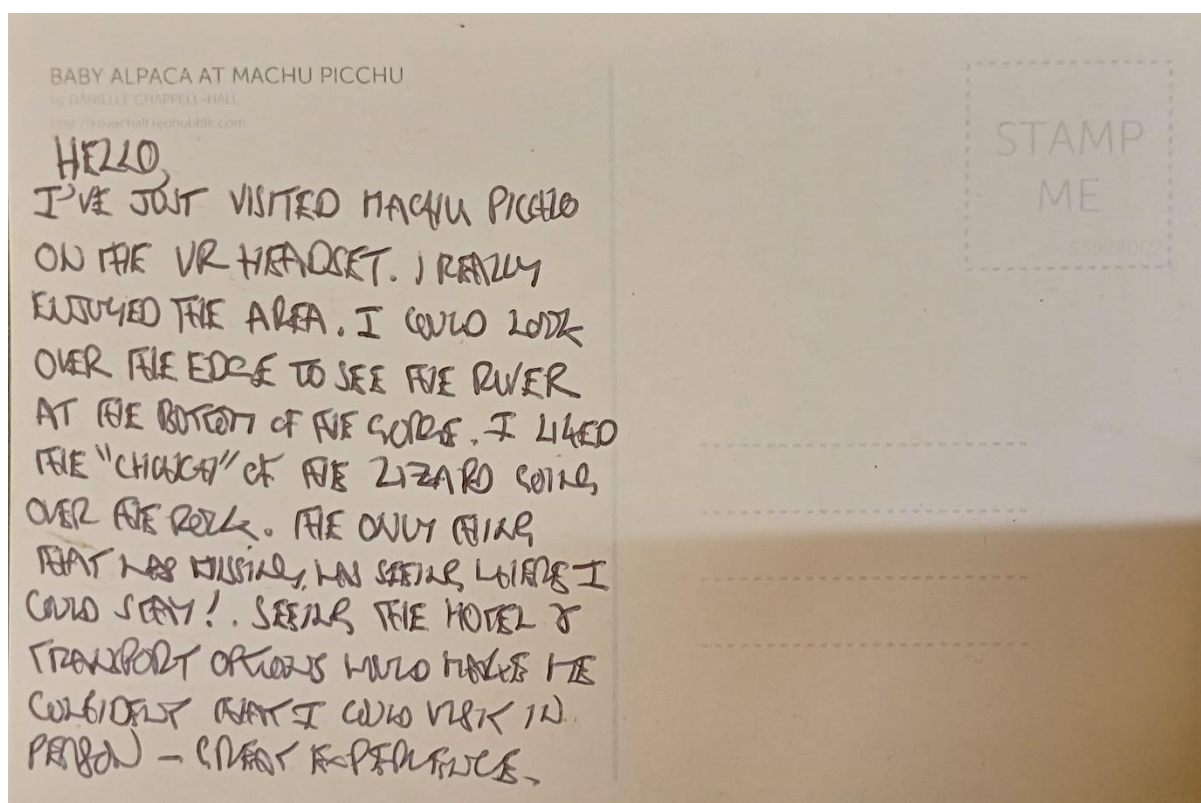 BABY ALPACA AT MACHU PICCHU
by DANIELLE CHAPPELL-HALL
STAMP
ME
HELLO,
I'VE JUST VISITED MACHU PICCHU
ON THE VR HEADSET. I REALLY
ENJOYED THE AREA. I COULD LOOK
OVER THE EDGE TO SEE THE RIVER
AT THE BOTTOM OF THE GORGE. I LIKED
THE "" OF THE LIZARD GOING
OVER THE ROCK. THE ONLY THING
THAT WAS MISSING, WAS SEEING WHERE I
COULD STAY!. SEEING THE HOTEL &
TRANSPORT OPTIONS WOULD MAKE ME
CONFIDENT THAT I COULD VISIT IN
PERSON – GREAT EXPERIENCE.